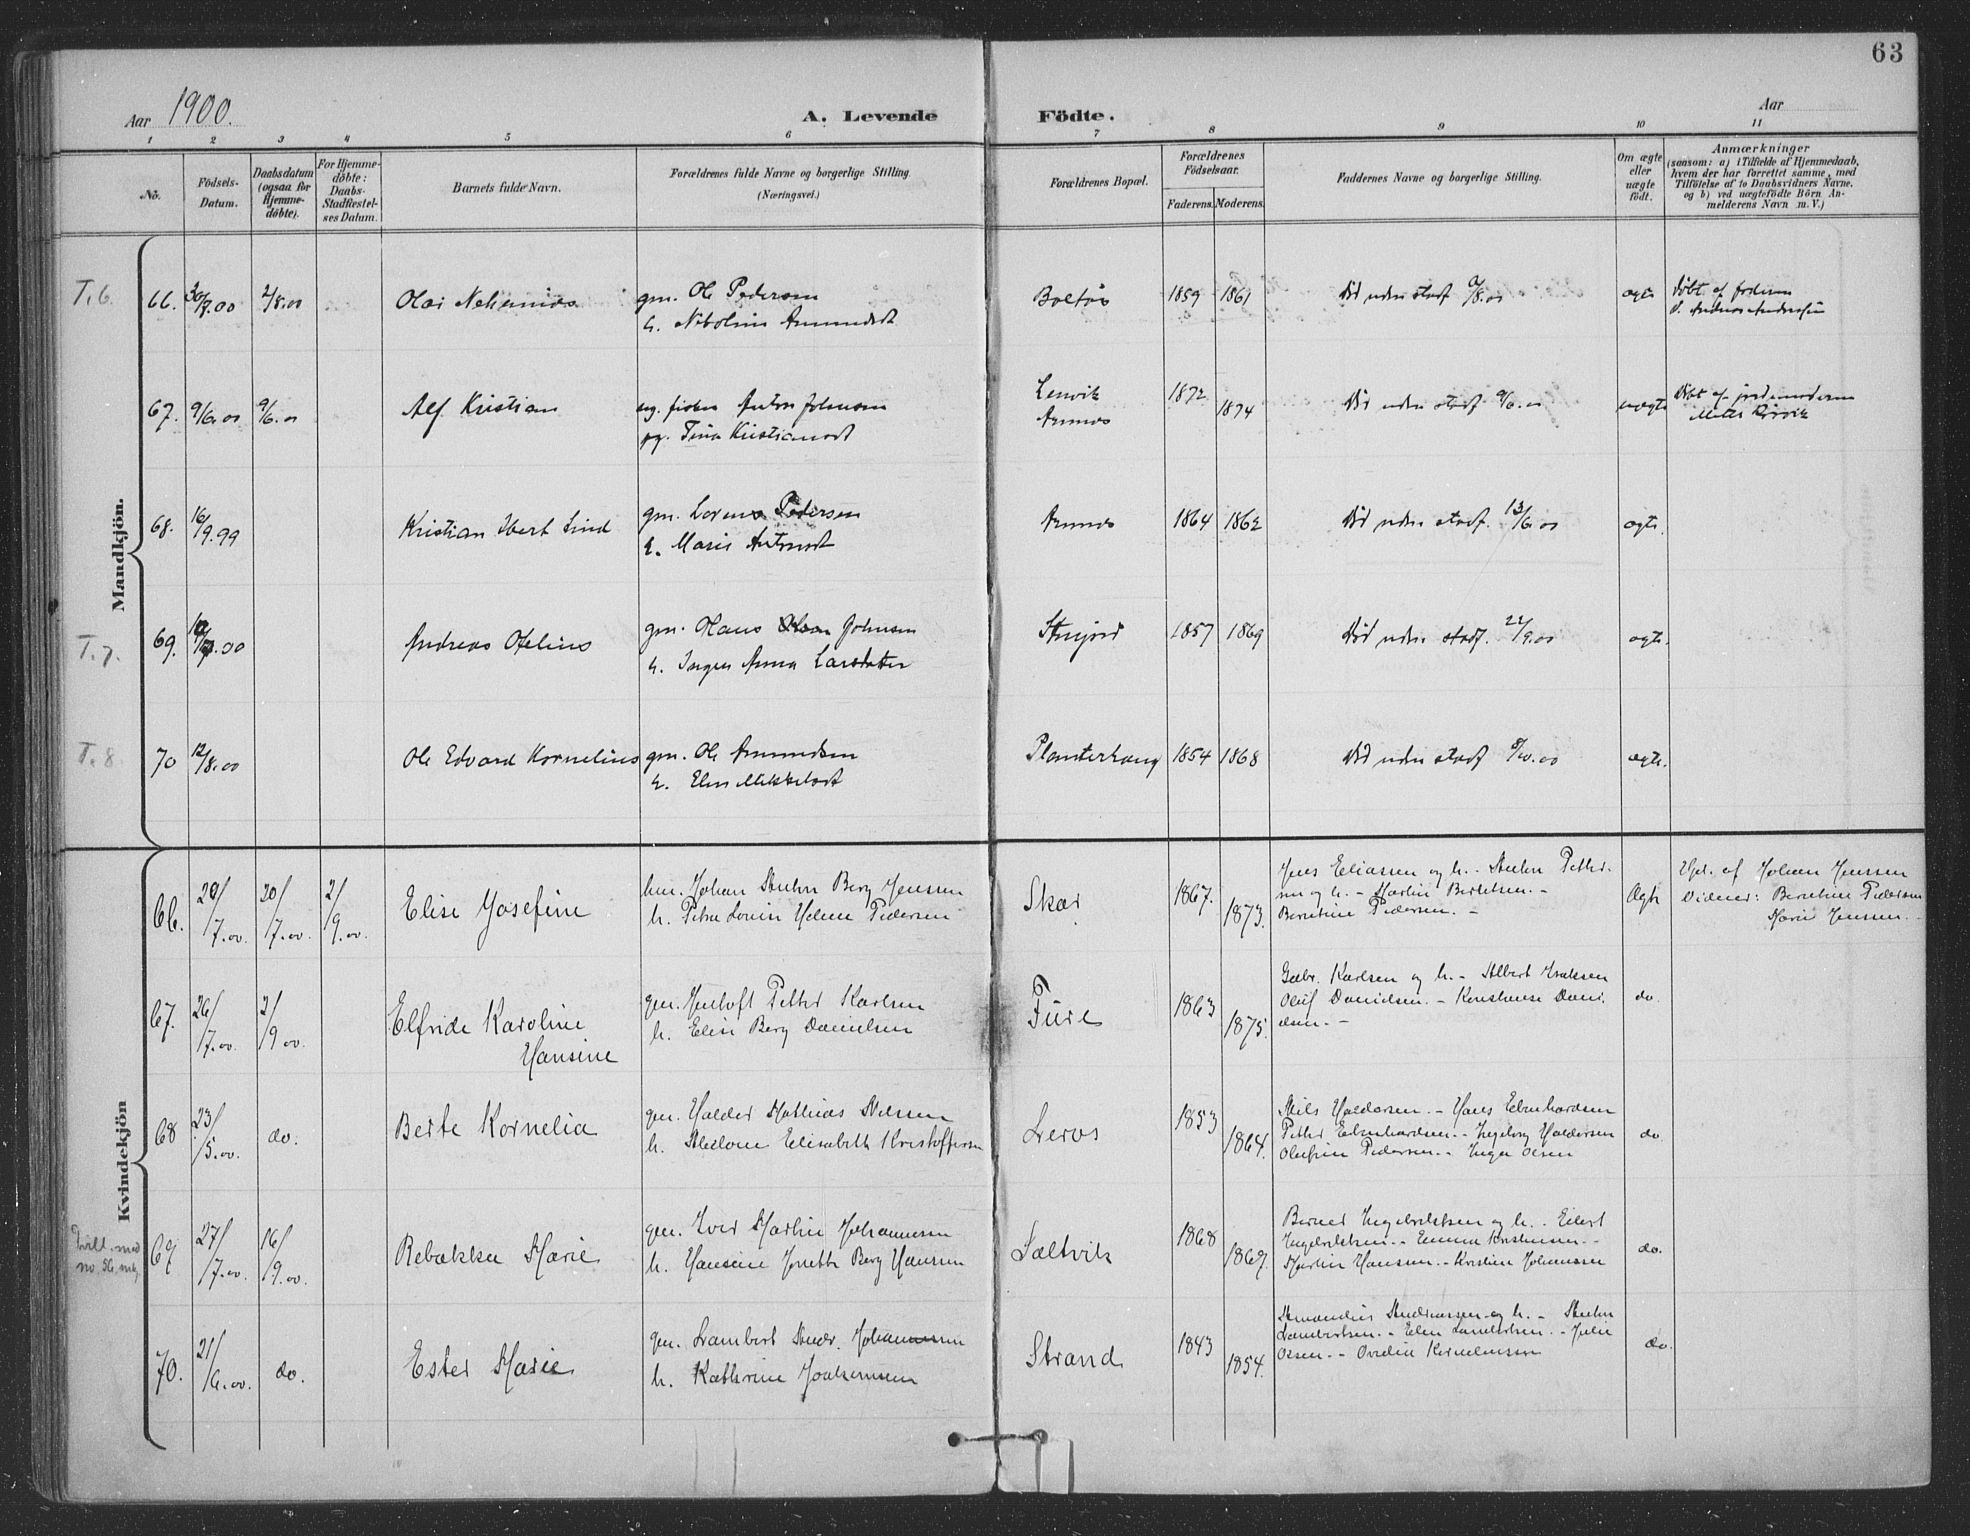 63
Aar 1900.
A. Levende Födte.
Aar
1 2 3 4 5 6 7 8 9 10 11
No.
Födsels-Datum.
Daabsdatum (ogsaa for Hjemme-döbte).
For Hjemme-döbte: Daabs-Stadfæstel-ses Datum.
Barnets fulde Navn.
Forældrenes fulde Navne og borgerlige Stilling. (Næringsvei.)
Forældrenes Bopæl.
Forældrenes Födselsaar.
Faderens. Moderens.
Faddernes Navne og borgerlige Stilling.
Om ægte eller uægte födt.
Anmærkninger
(saasom: a) i Tilfælde af Hjemmedaab, hvem der har forrettet samme, med Tilföielse af to Daabsvidners Navne, og b) ved uægtefödte Börn An-melderens Navn m. V.)
Mandkjön.
T. 6. 66. 30/7.00 2/8.00 Olai Nehemias gm. Ole Pedersen
h. Nikoline Amundsdt
1859 1861 Död uden stadf. ægte Döbt af faderen
67. 9/6.00 9/6.00 Alf Kristian ug. fisker Anton Johnsen
pg. Tina Kristiansdt
Lenvik
1872 1874 Död uden stadf. 9/6.00 uægte
68. 16/9.99 Kristian Ibert Lind gm. Lorens Pedersen
h. Marie Antonsdt
1864 1862 Död uden stadf. 13/6.00 ægte.
T. 7. 69. Andreas Ofelius gm. Hans Johnsen
h. Inger Anna Larsdatter
1857 1869 Död uden stadf. 22/9.00 ægte.
T. 8 70 12/8.00 Ole Edvard Kornelius gm. Ole Amundsen
h. Elen Mikkelsdt
1854 1868 Död uden stadf. ægte.
Kvindekjön
66. 29/7.00. 20/7.00. 2/9.00. Elise Josefine
h. Petra Lovise Helene Pedersen
Skar 1867. 1873.
Jens Eliassen og h. - Anton Petter-
sen og h. - Martin Bertelsen. -
Berntine Pedersen. -
Ægte Hjd. af Johan Jenssen
Vidner: Berntine Pedersen
Marie Jenssen. -
67. 26/7.00. 2/9.00. Elfride Karoline
Hansine
gm. Petter Karlsen
h. Elise Berg Danielsen
Fure 1863 1875.
Gabr. Karlsen og h. - Albert Isaksen
Oluf Danielsen. - Konstanse Dani-
elsen. -
do.
68 23/5.00. do. Berte Kornelia gm. Haldor Mathias Nilssen
h. Elisabeth Kristoffersen
Leros 1853 1864.
Nils Haldorsen. - Hans Edvardsen
Petter Edvardsen. - Ingeborg Haldorsen
Olufine Pedersen. - Inger Olsen
do
69 27/7.00. 16/9.00. Rebækka Marie gm. Iver Martin Johannesen
h. Hansine Berg Hansen
Saltvik 1868 1869.
Berner Ingebrigtsen og h. - Eilert
Ingebrigtsen. - Emma Kristensen. -
Martin Hansen. - Kristine Johannesen
do.
70. 21/6.00. do. Ester Marie gm. Lambert Andr. Johannessen
h. Kathrine Joakimsen
Strand 1843 1854.
Amandus Andreassen og h. - Anton
Lambertsen. - Elen Lambertsen. - Julie
Olsen. - Ovedie Korneliussen
do.